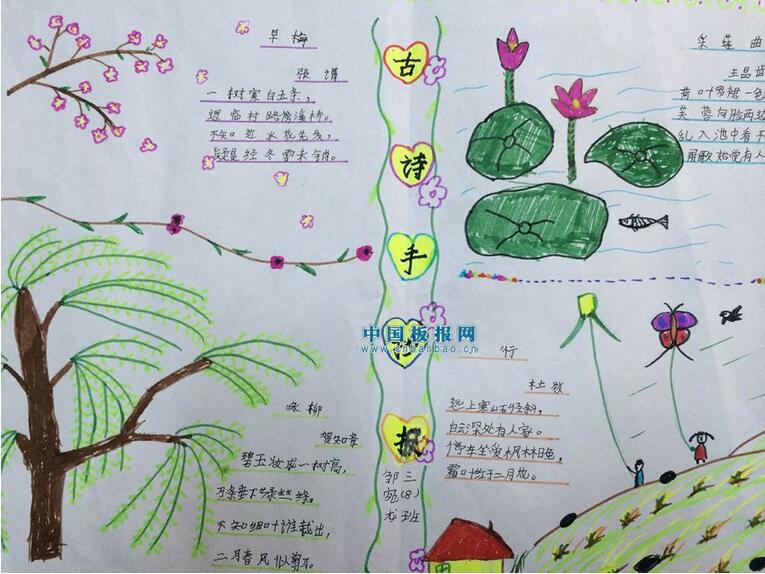 早梅
张谓
一树寒白玉条，
迥临村路傍溪桥。
不知近水花先发，
疑是经冬雪未销。
古
诗
手
报
中国板报网
www.chbanbao.cn
采莲曲
王昌龄
荷叶罗裙一色
芙蓉向脸两边
乱入池中看不
闻歌始觉有人
咏柳
贺知章
碧玉妆成一树高，
万条垂下绿丝绦。
不知细叶谁裁出，
二月春风似剪刀。
行
杜牧
远上寒山石径斜，
白云深处有人家。
停车坐爱枫林晚，
霜叶红于二月花。
三(8)班